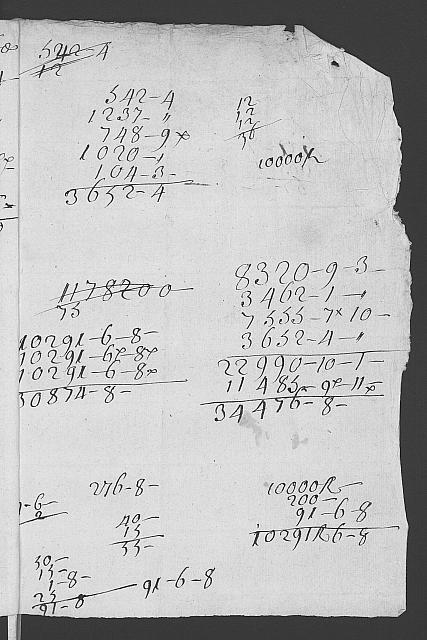 542-4
12
542-4
1237-"
748-9
1020-1
104-3-
3652-4
12
12
12
36
10000
11178200
75
8320-9-3-
3462-1-"
7555-7 10-
3652-4-"
22990-10-1-
11485-9-11
34476-8-
10291-6-8-
10291-6-8
10291-6-8
30874-8-
276-8-
40-
15-
55-
-6-
2
10000
200-
91-6-8
10291 6-8
50-
15-
1-8-
25
91-8
91-6-8